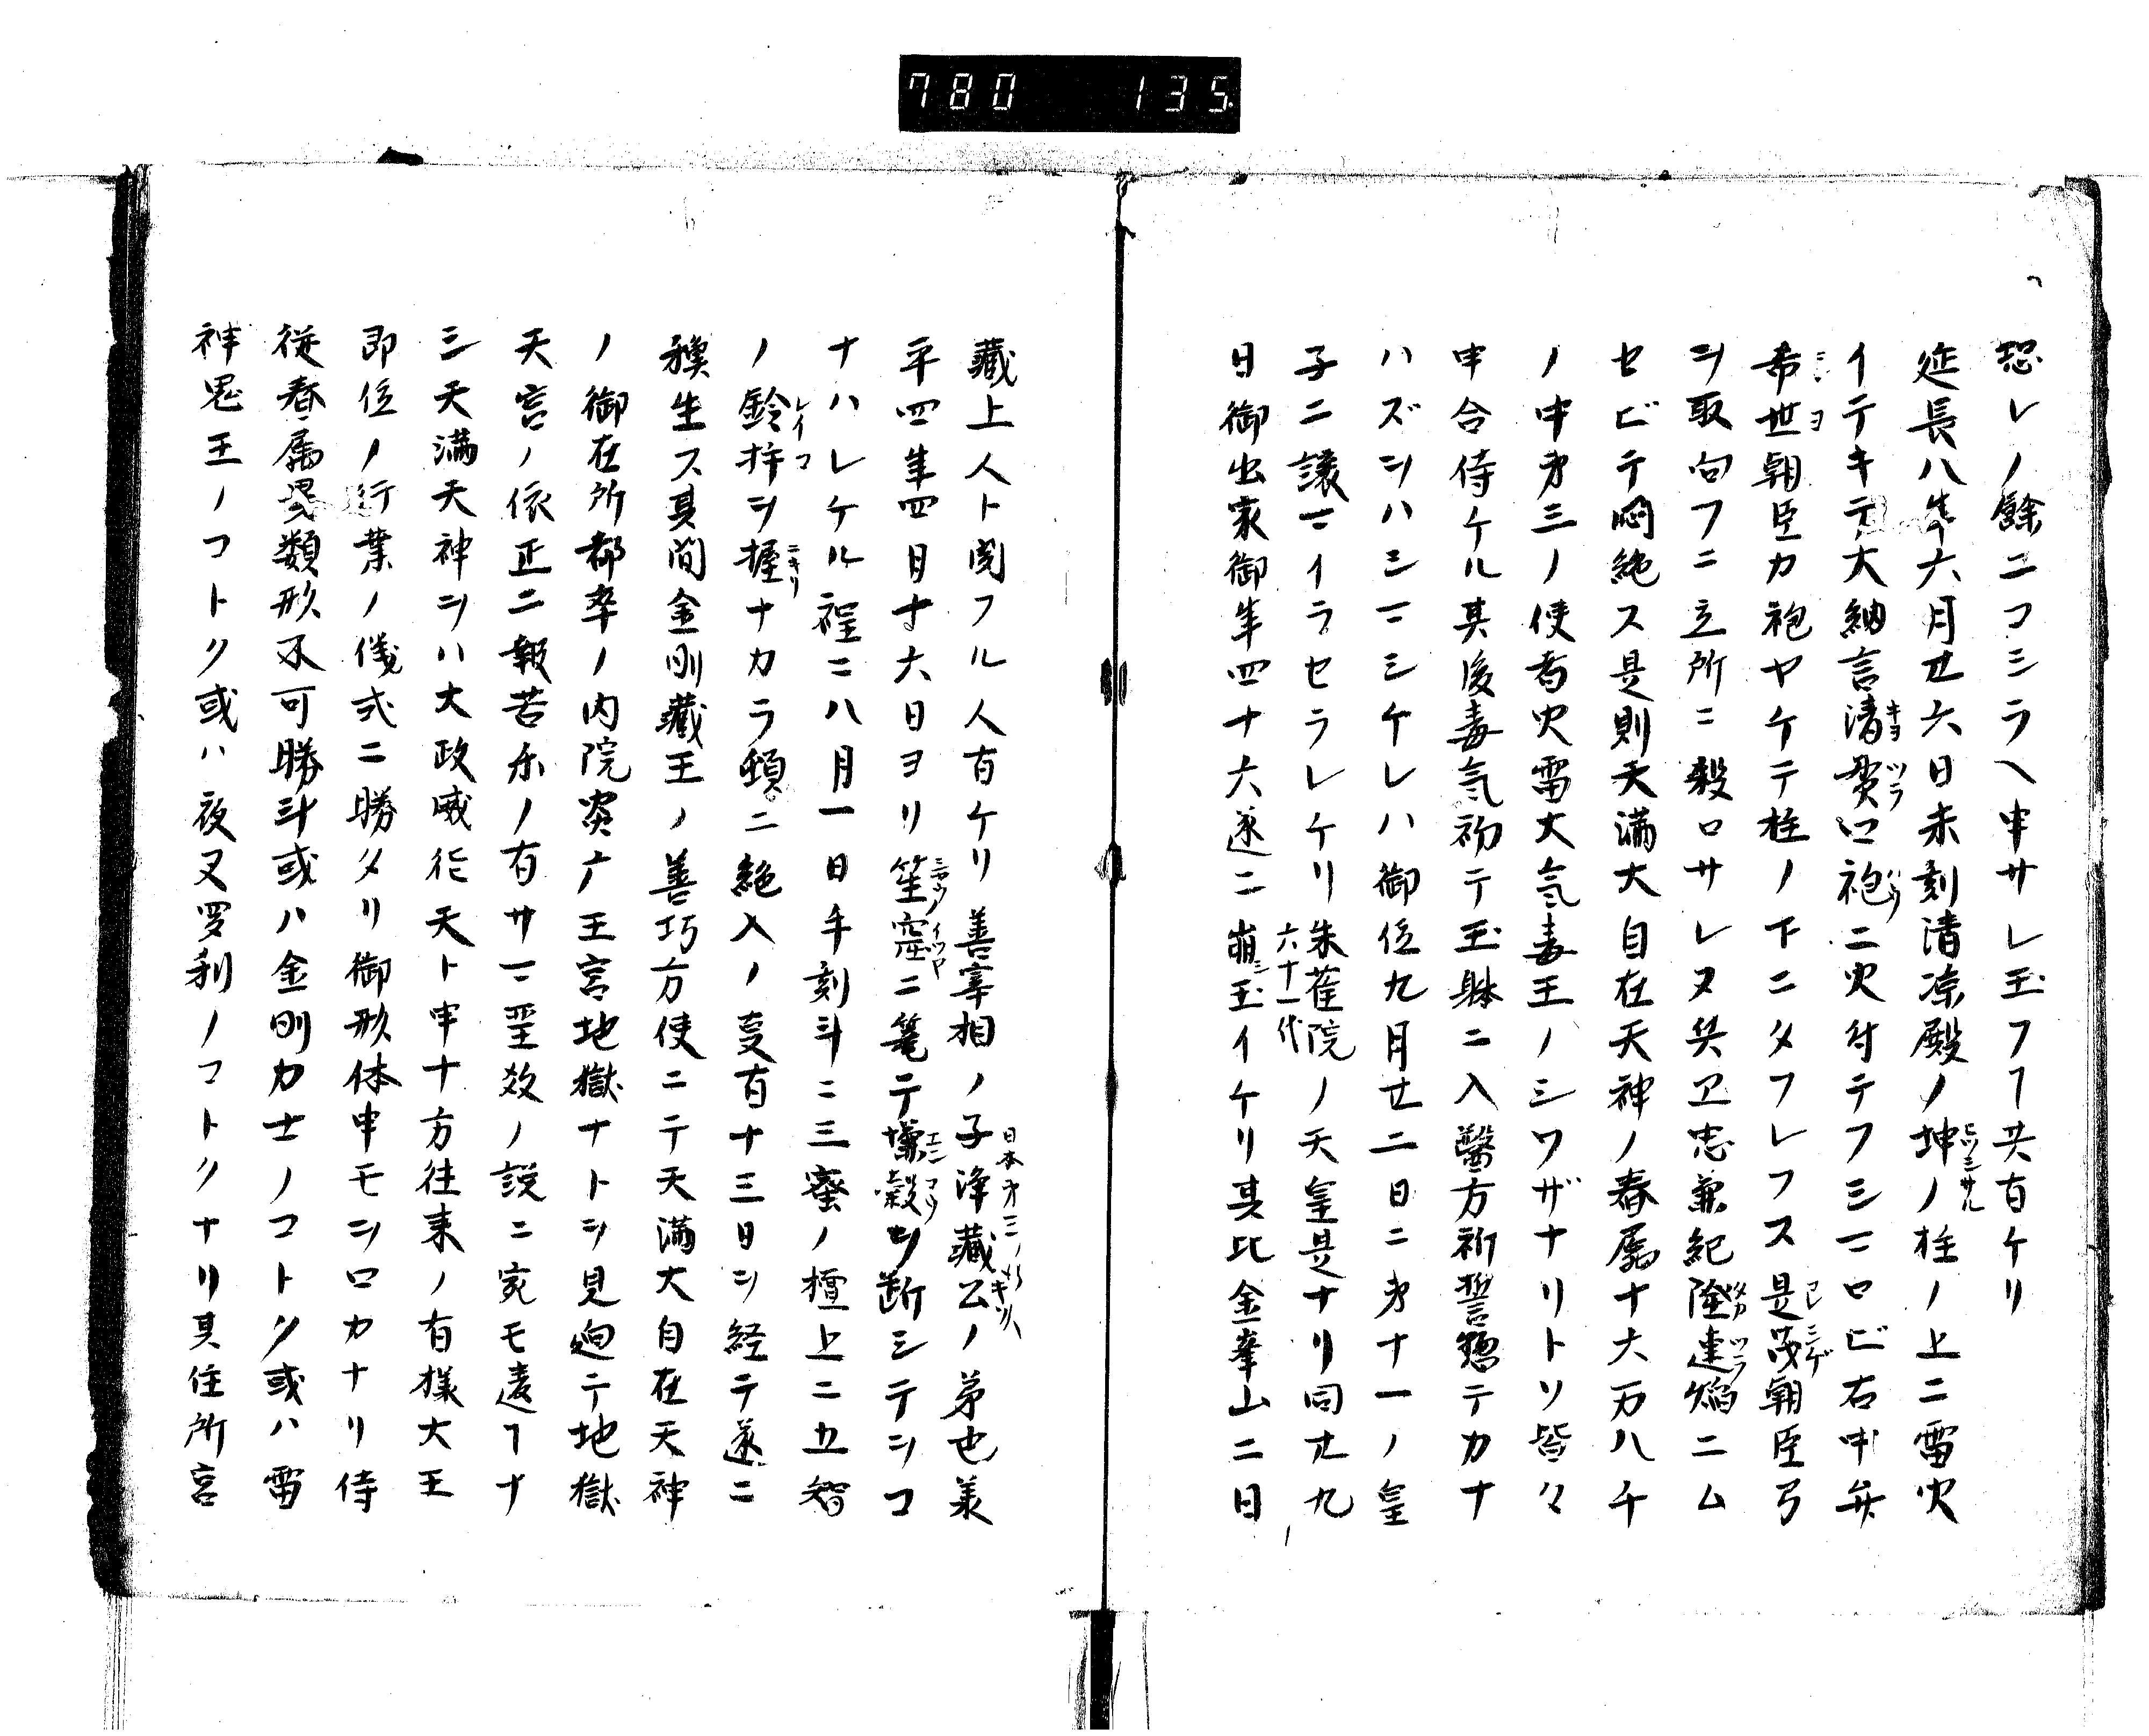 780 135
恐レノ餘ニコシラヘ申サレ玉フヿ共有ケリ
延長八年六月廿六日未刻清凉殿ノ坤ノ柱ノ上ニ雷火
イテキテ大納言清貫口袍ニ火付テフシマロビ右中弁
希世朝臣カ袍ヤケテ柱ノ下ニタフレフス是茂朝臣弓
ヲ取向フニ立所ニ殺ロサレヌ兵卫忠兼紀隆連焔ニム
セビテ悶絶ス是則天満大自在天神ノ眷属十六万八千
ノ中第三ノ使者火雷大気毒王ノシワザナリトソ皆々
申合侍ケル其後毒気初テ玉躰ニ入醫方祈誓惣テカナ
ハズヲハシマシケレハ御位九月廿二日ニ第十一ノ皇
子ニ譲マイラセラレケリ朱雀院ノ天皇是ナリ同廿九
六十一代
日御出家御年四十六遂ニ崩玉イケリ其比金峯山ニ日
藏上人ト聞フル人有ケリ善宰相ノ子浄藏公ノ弟也羕
日本第三ノ
平四年四月十六日ヨリ笙窟ニ篭テ塩穀ヲ断シテヲコ
ナハレケル程ニ八月一日午刻斗ニ三蜜ノ檀上ニ五智
ノ鈴杵ヲ握ナカラ頓ニ絶入ノ支有十三日ヲ経テ遂ニ
穌生ス其間金剛藏王ノ善巧方便ニテ天満大自在天神
ノ御在所都率ノ内院炎广王宮地獄ナトヲ見廻テ地獄
天宮ノ依正二報苦楽ノ有サマ聖教ノ説ニ露モ違ヿナ
シ天満天神ヲハ大政威徳天ト申十方往来ノ有様大王
即位ノ行業ノ儀式ニ勝タリ御形体申モヲロカナリ侍
従眷属異類形不可勝斗或ハ金剛力士ノコトク或ハ雷
神鬼王ノコトク或ハ夜叉罗刹ノコトクナリ其住所宮